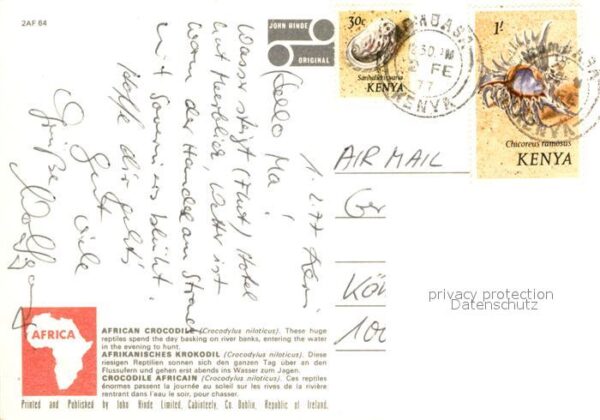 2AF 64
JOHN HINDE
ORIGINAL
30c
KENYA
1/-
Chicoreus ramosus
KENYA
MOMBASA
FE
77
KENYA
AIR MAIL
1.2.77
Hello Ma!
Wasser steigt (Flut) Hotel
mit Meerblick, Wetter ist
warm der Handel am Strand
mit Souveniers blüht.
Hoffe dir geht's
gut viele
Grüße
Wolfgang
privacy protection
Datenschutz
AFRICA
AFRICAN CROCODILE (Crocodylus niloticus). These huge
reptiles spend the day basking on river banks, entering the water
in the evening to hunt.
AFRIKANISCHES KROKODIL (Crocodylus niloticus). Diese
riesigen Reptilien sonnen sich den ganzen Tag über an den
Flussufern und gehen erst abends ins Wasser zum Jagen.
CROCODILE AFRICAIN (Crocodylus niloticus). Ces reptiles
énormes passent la journée au soleil sur les rives de la rivière
rentrant dans l'eau le soir, pour chasser.
Printed and Published by John Hinde Limited, Cabinteely, Co. Dublin, Republic of Ireland.